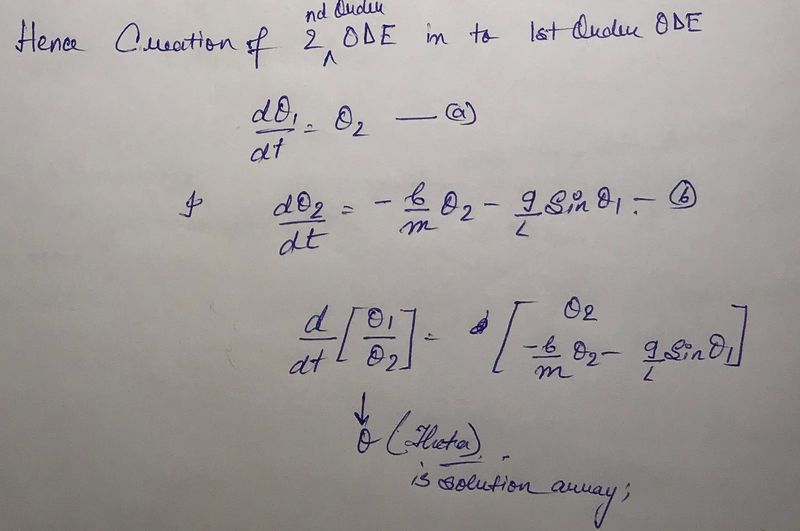 Hence Creation of 2 nd Order ODE in to 1st Order ODE
dθ₁/dt = θ₂ — (a)
& dθ₂/dt = - b/m θ₂ - g/L Sin θ₁ - (b)
d/dt [θ₁/θ₂] = [θ₂
-b/m θ₂ - g/L Sin θ₁]
↓
θ (Theta)
is solution array;